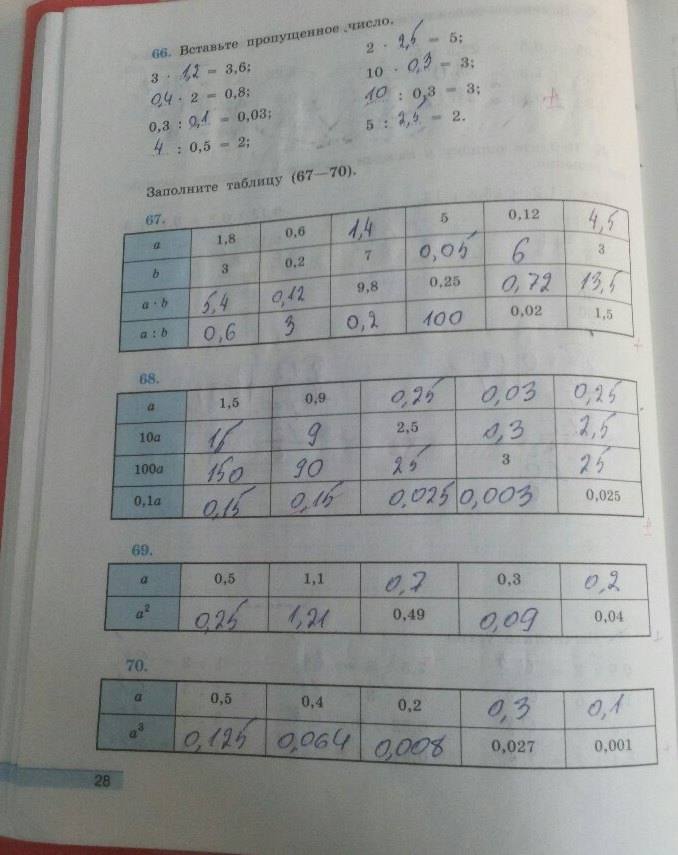 66. Вставьте пропущенное число.
3 · 1,2 = 3,6;
2 · 2,5 = 5;
0,4 · 2 = 0,8;
10 · 0,3 = 3;
0,3 : 0,1 = 0,03;
10 : 0,3 = 3;
4 : 0,5 = 2;
5 : 2,5 = 2.
Заполните таблицу (67—70).
67.
a 1,8 0,6 1,4 5 0,12 4,5
b 3 0,2 7 0,05 6 3
a · b 5,4 0,12 9,8 0,25 0,72 13,5
a : b 0,6 3 0,2 100 0,02 1,5
68.
a 1,5 0,9 0,25 0,03 0,25
10a 15 9 2,5 0,3 2,5
100a 150 90 25 3 25
0,1a 0,15 0,15 0,025 0,003 0,025
69.
a 0,5 1,1 0,7 0,3 0,2
a² 0,25 1,21 0,49 0,09 0,04
70.
a 0,5 0,4 0,2 0,3 0,1
a³ 0,125 0,064 0,008 0,027 0,001
28